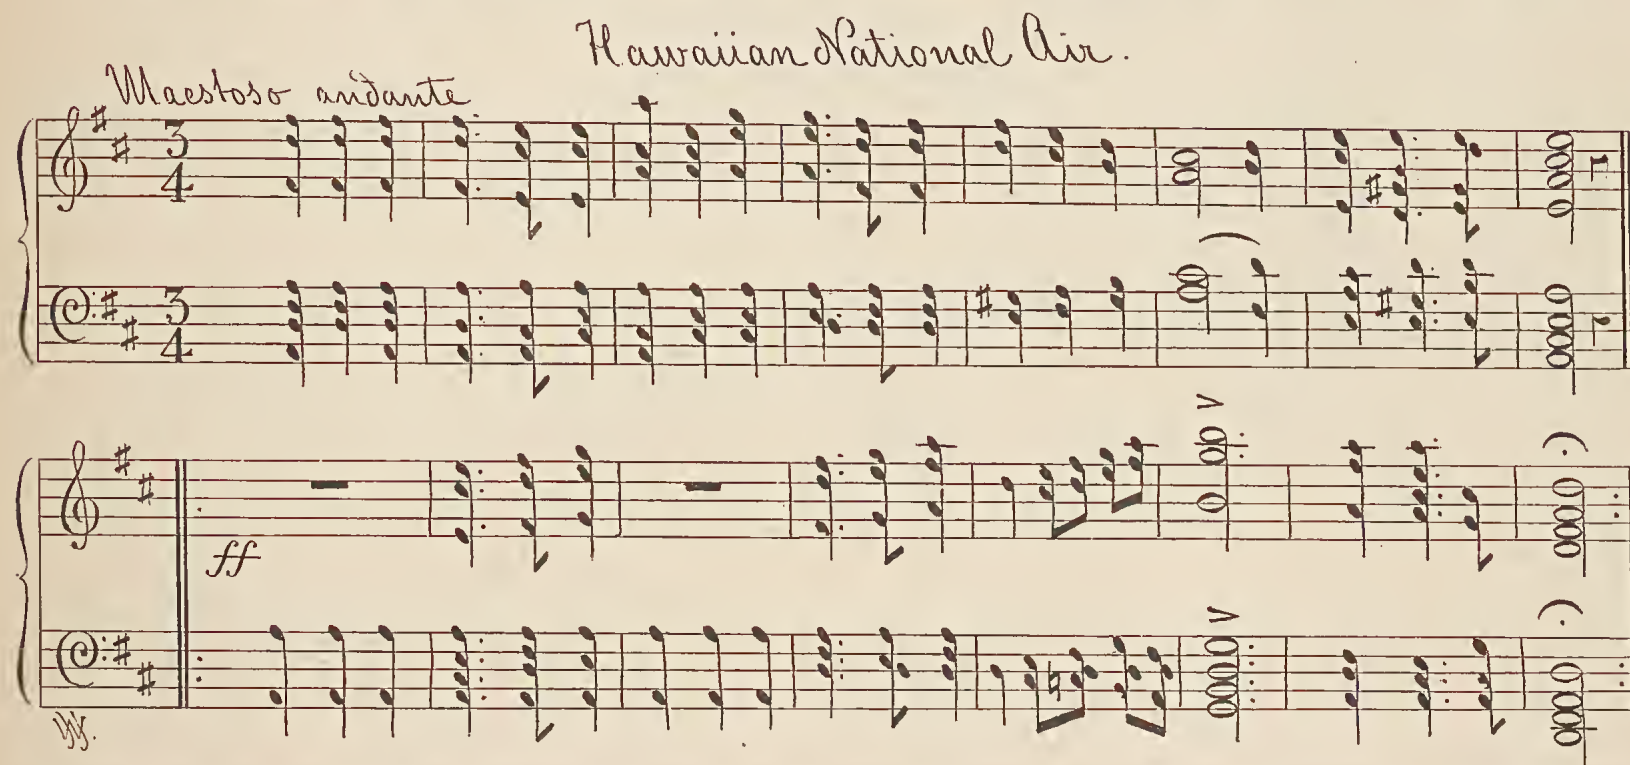 Hawaiian National Air.
Maestoso andante
3
4
3
4
ff